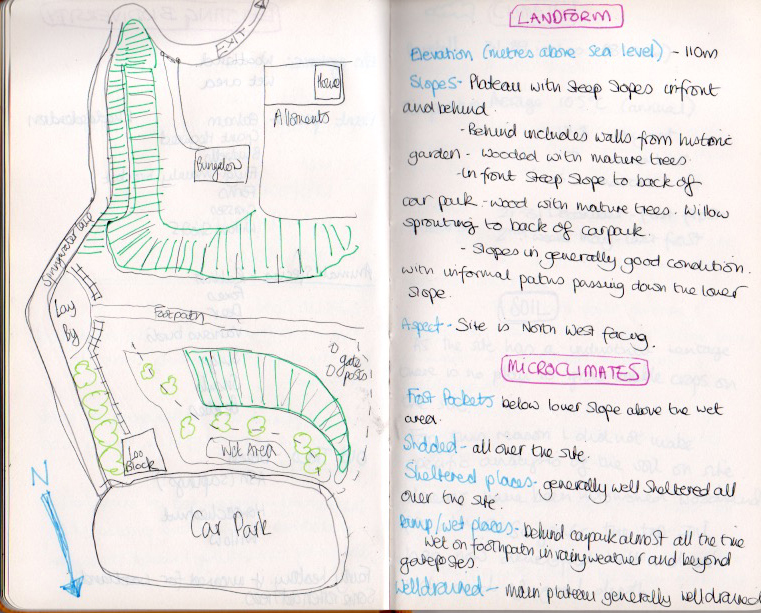 EXIT
House
Allotments
Bungalow
Lay
By
Footpath
gate
posts
Wet Area
Loo
Block
N
Car Park
LANDFORM
Elevation (metres above sea level) - 110m
Slopes - Plateau with steep slopes infront
and behind.
- Behind includes walls from historic
garden - wooded with mature trees
- In front steep slope to back of
car park - wood with mature trees. Willow
sprouting to back of carpark.
- Slopes in generally good condition.
with informal paths passing down the lower
slope.
Aspect - Site is North West facing.
MICROCLIMATES
Frost Pockets below lower slope above the wet
area.
Shaded - all over the site.
Sheltered places - generally well sheltered all
over the site.
Damp/wet places - behind carpark almost all the time
wet on footpath in rainy weather and beyond
gateposts.
Well drained - main plateau generally well drained